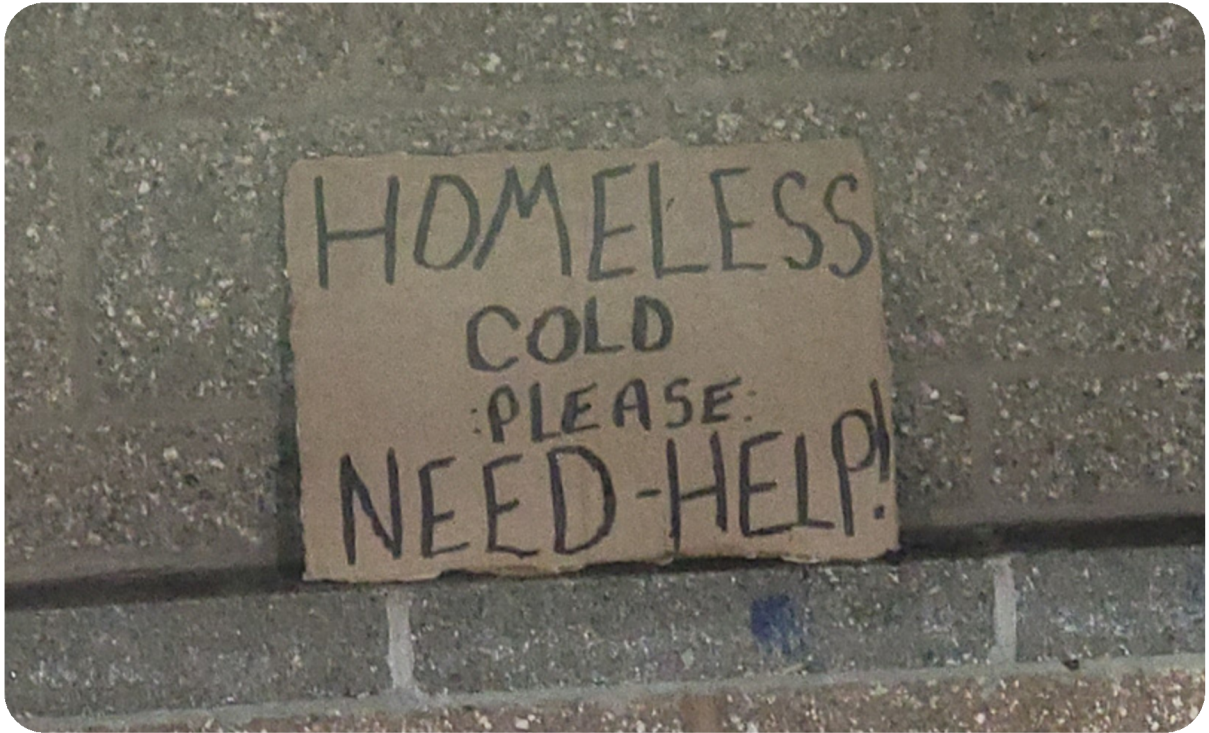 HOMELESS
COLD
:PLEASE:
NEED-HELP!